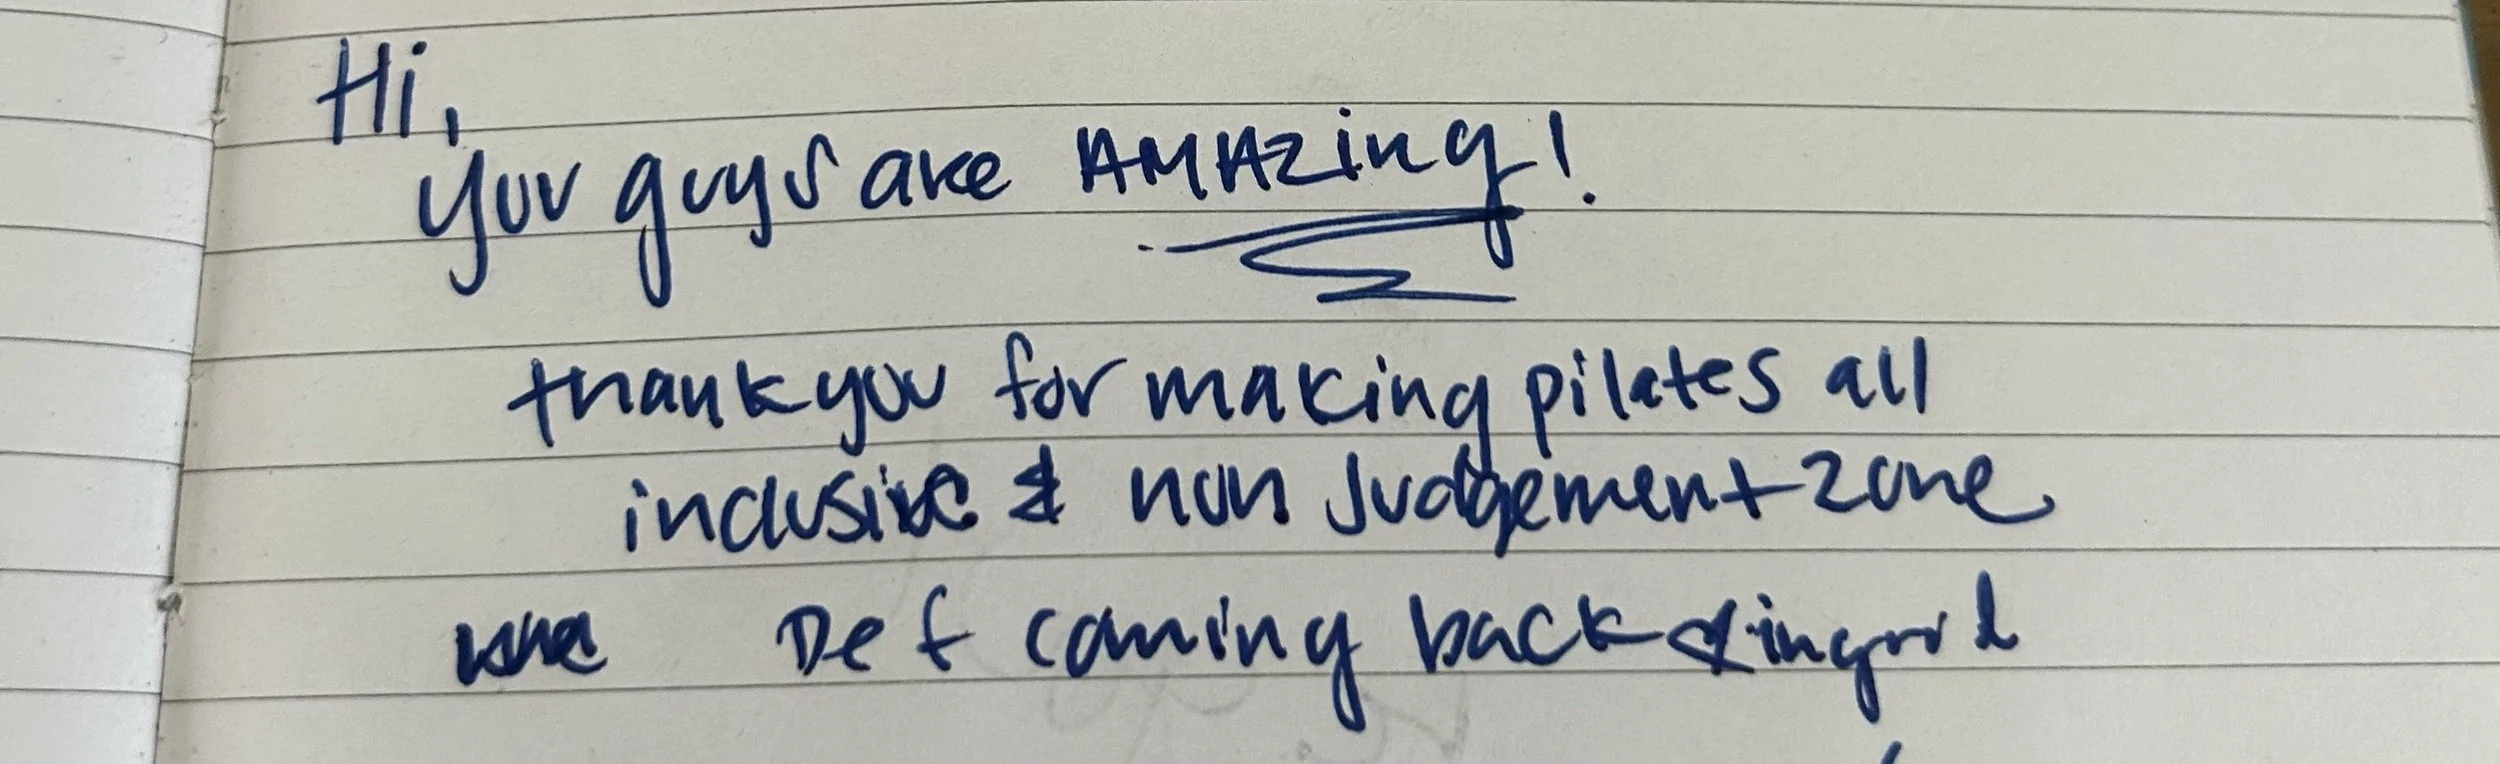 Hi,
you guys are AMAZing!
thank you for making pilates all
inclusive & non Judgement zone
Def coming back & in good